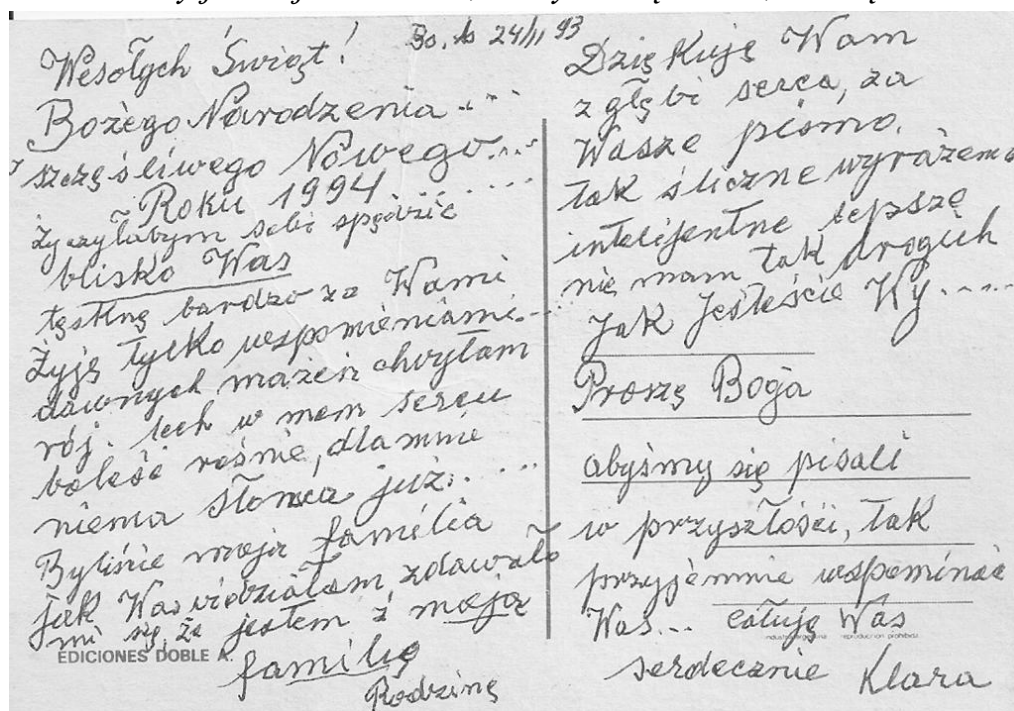 Bs. As 24/11 93
Wesołych Świąt!
Bożego Narodzenia ....
szczęśliwego Nowego....
Roku 1994 .......
życzyłabym sobi spędzić
blisko Was
tęsknę bardzo za Wami
Żyję tylko wspomieniami...
dawnych mażeń chwytam
rój. lech w mem sercu
boleść rośnie, dla mnie
niema słońca już. ...
Byliście moja familia
jak Was widziałam, zdawało
mi się, że jestem z moją
familię
Rodzinę
EDICIONES DOBLE A.
Dziękuję Wam
z głębi serca, za
Wasze pismo.
tak śliczne wyrażema
inteligentne lepsze
nie mam tak drogich
Jak Jesteście Wy.....
Proszę Boga
abyśmy się pisali
w przyszłości, tak
przyjemnie wspominać
Was... całuję Was
industria argentina reproduccion prohibida
serdecznie Klara